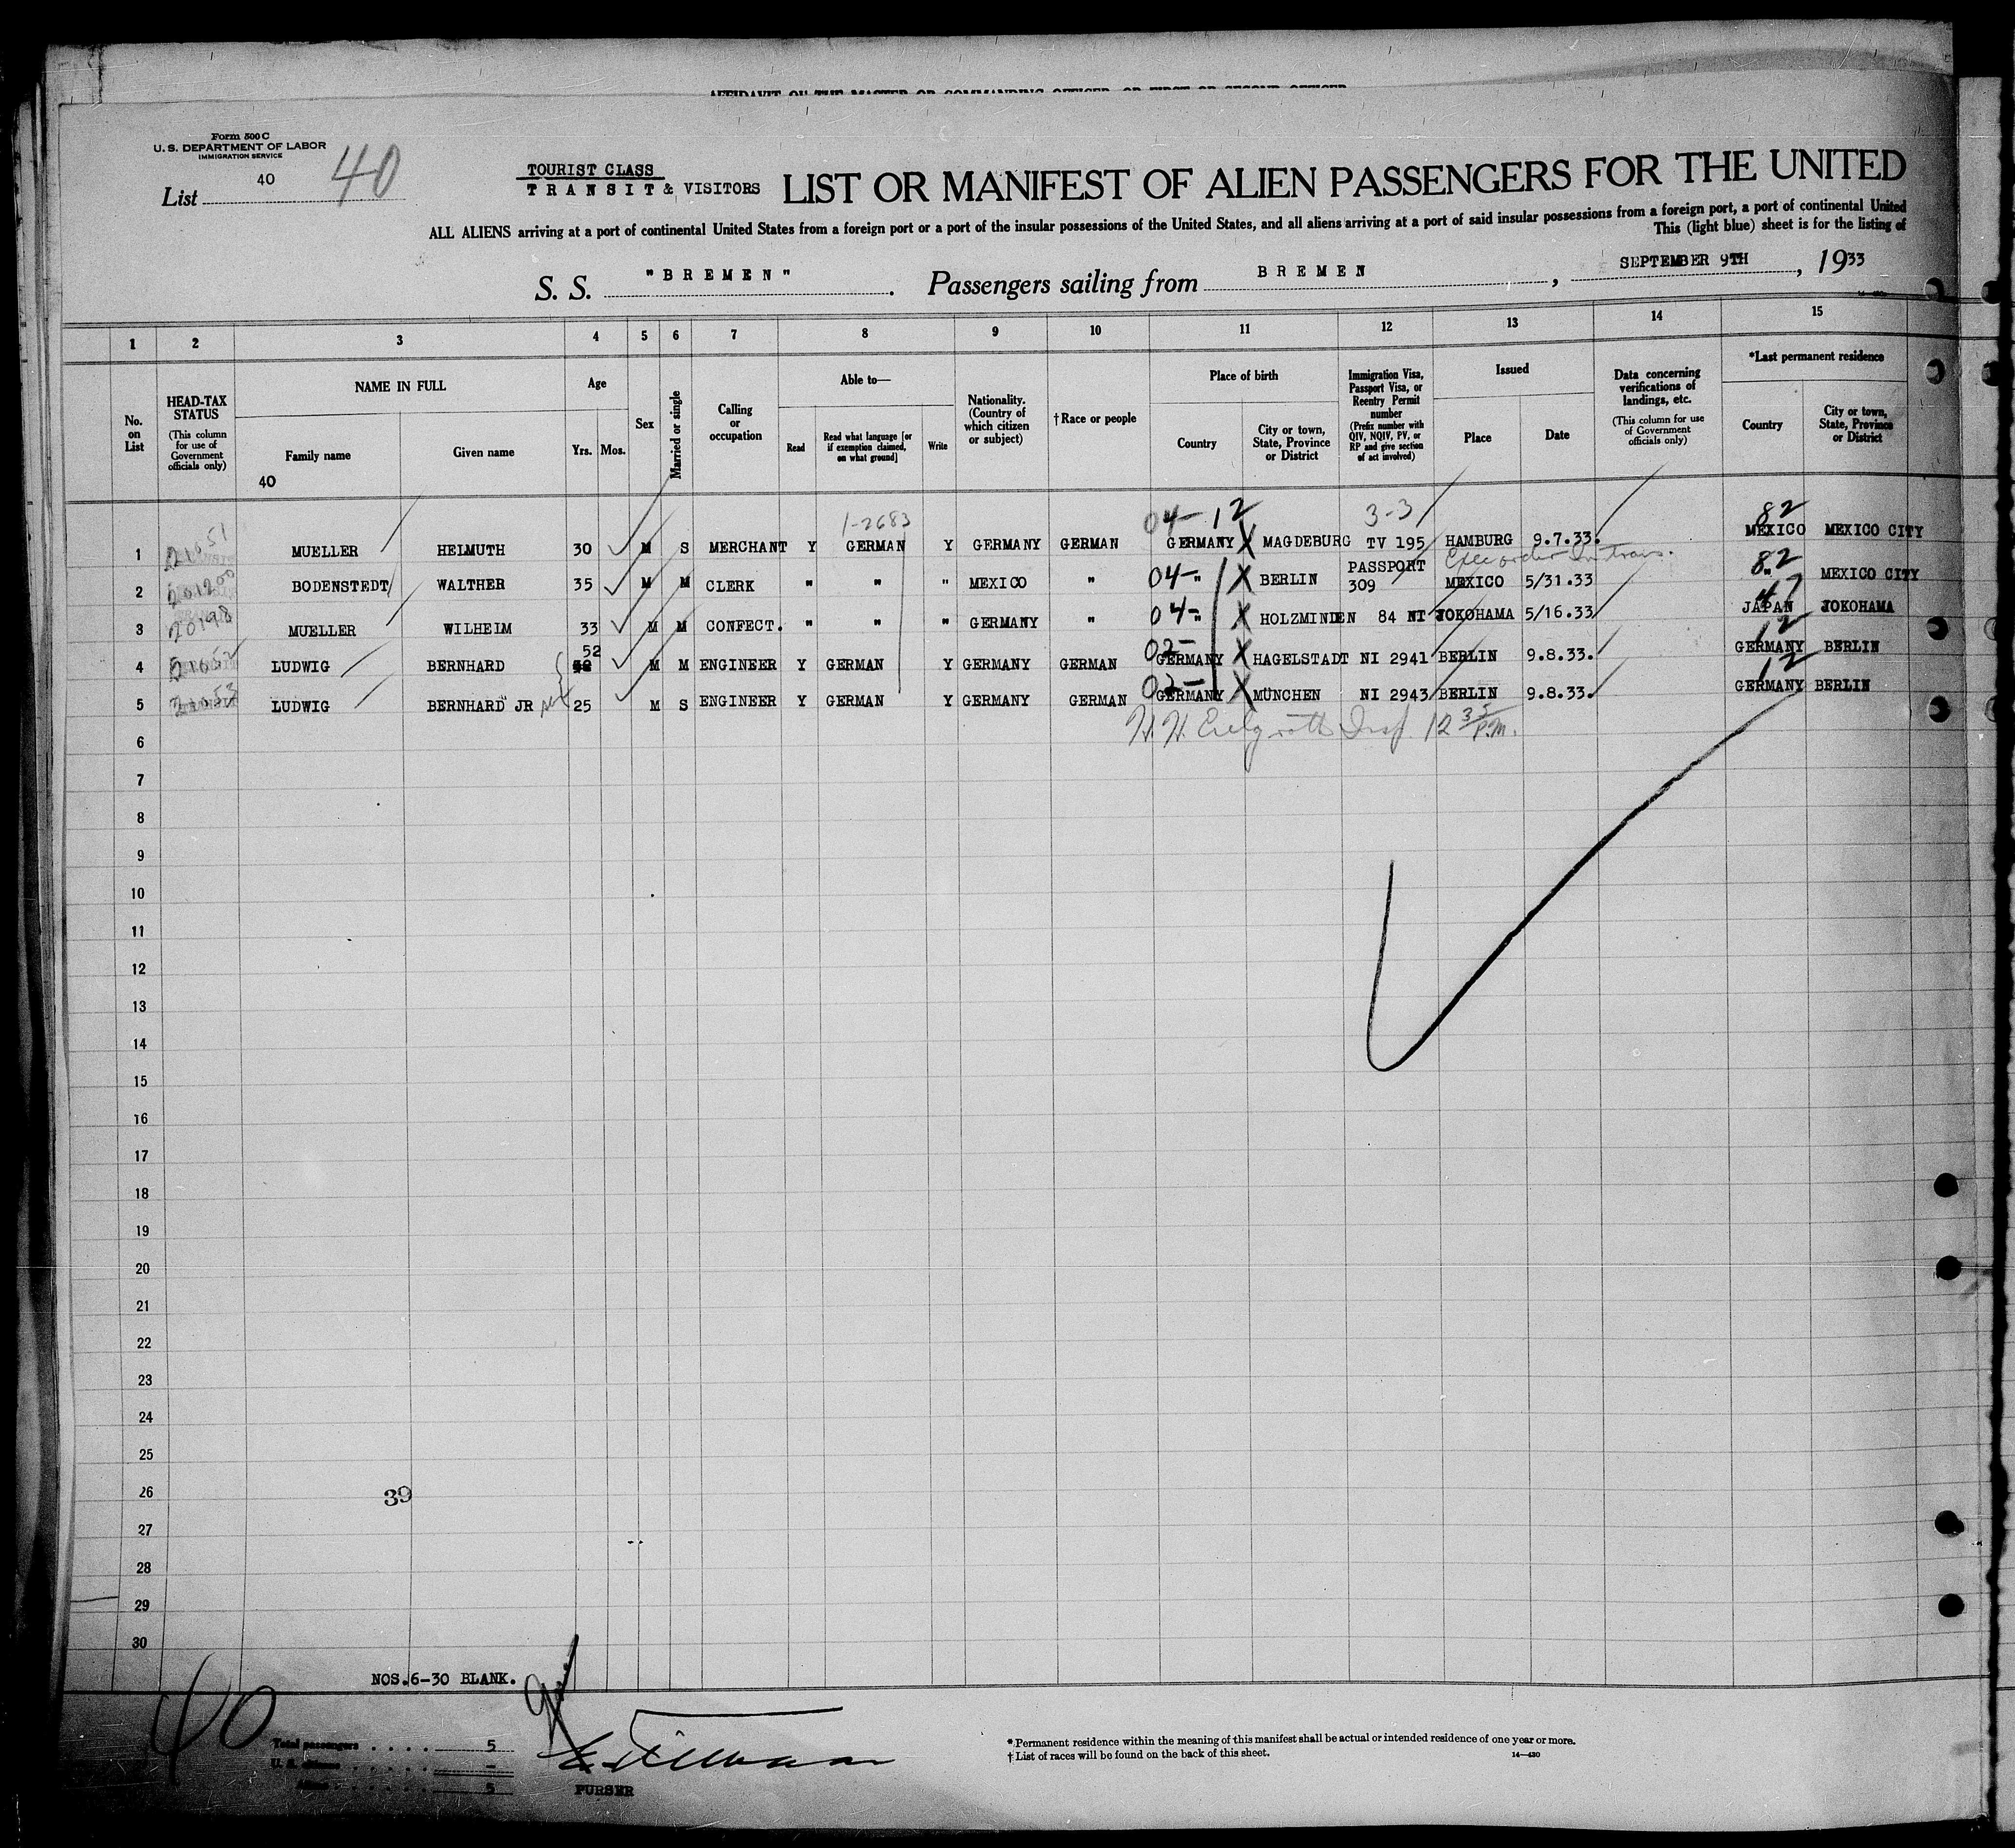 Form 500 C
U. S. DEPARTMENT OF LABOR
IMMIGRATION SERVICE
List 40
40
TOURIST CLASS
TRANSIT & VISITORS
LIST OR MANIFEST OF ALIEN PASSENGERS FOR THE UNITED
ALL ALIENS arriving at a port of continental United States from a foreign port or a port of the insular possessions of the United States, and all aliens arriving at a port of said insular possessions from a foreign port, a port of continental United
This (light blue) sheet is for the listing of
S. S. "BREMEN". Passengers sailing from BREMEN, SEPTEMBER 9TH, 1933
1 2 3 4 5 6 7 8 9 10 11 12 13 14 15
No. on List
HEAD-TAX STATUS
(This column for use of Government officials only)
NAME IN FULL
Family name
Given name
40
Age
Yrs. Mos.
Sex
Married or single
Calling or occupation
Able to—
Read
Read what language [or if exemption claimed, on what ground]
Write
Nationality. (Country of which citizen or subject)
†Race or people
Place of birth
Country
City or town, State, Province or District
Immigration Visa, Passport Visa, or Reentry Permit number
(Prefix number with QIV, NQIV, PV, or RP and give section of act involved)
Issued
Place
Date
Data concerning verifications of landings, etc.
(This column for use of Government officials only)
*Last permanent residence
Country
City or town, State, Province or District
1-2683 04-12 3-3 82
1 MUELLER HELMUTH 30 M S MERCHANT Y GERMAN Y GERMANY GERMAN GERMANY X MAGDEBURG TV 195 HAMBURG 9.7.33. MEXICO MEXICO CITY
2 BODENSTEDT WALTHER 35 M M CLERK " " " MEXICO " 04- " X BERLIN PASSPORT 309 MEXICO 5/31.33 82 " MEXICO CITY
3 MUELLER WILHEIM 33 M M CONFECT. " " " GERMANY " 04- " X HOLZMINDEN 84 NT YOKOHAMA 5/16.33 47 JAPAN YOKOHAMA
4 LUDWIG BERNHARD 52 M M ENGINEER Y GERMAN Y GERMANY GERMAN 02- GERMANY X HAGELSTADT NI 2941 BERLIN 9.8.33. 12 GERMANY BERLIN
5 LUDWIG BERNHARD JR 25 M S ENGINEER Y GERMAN Y GERMANY GERMAN 02- GERMANY X MÜNCHEN NI 2943 BERLIN 9.8.33. 12 GERMANY BERLIN
6
7
8
9
10
11
12
13
14
15
16
17
18
19
20
21
22
23
24
25
26
39
27
28
29
30
NOS.6-30 BLANK.
40
Total passengers 5
U. S. citizens -
Aliens 5
PURSER
*Permanent residence within the meaning of this manifest shall be actual or intended residence of one year or more.
†List of races will be found on the back of this sheet.
14—430